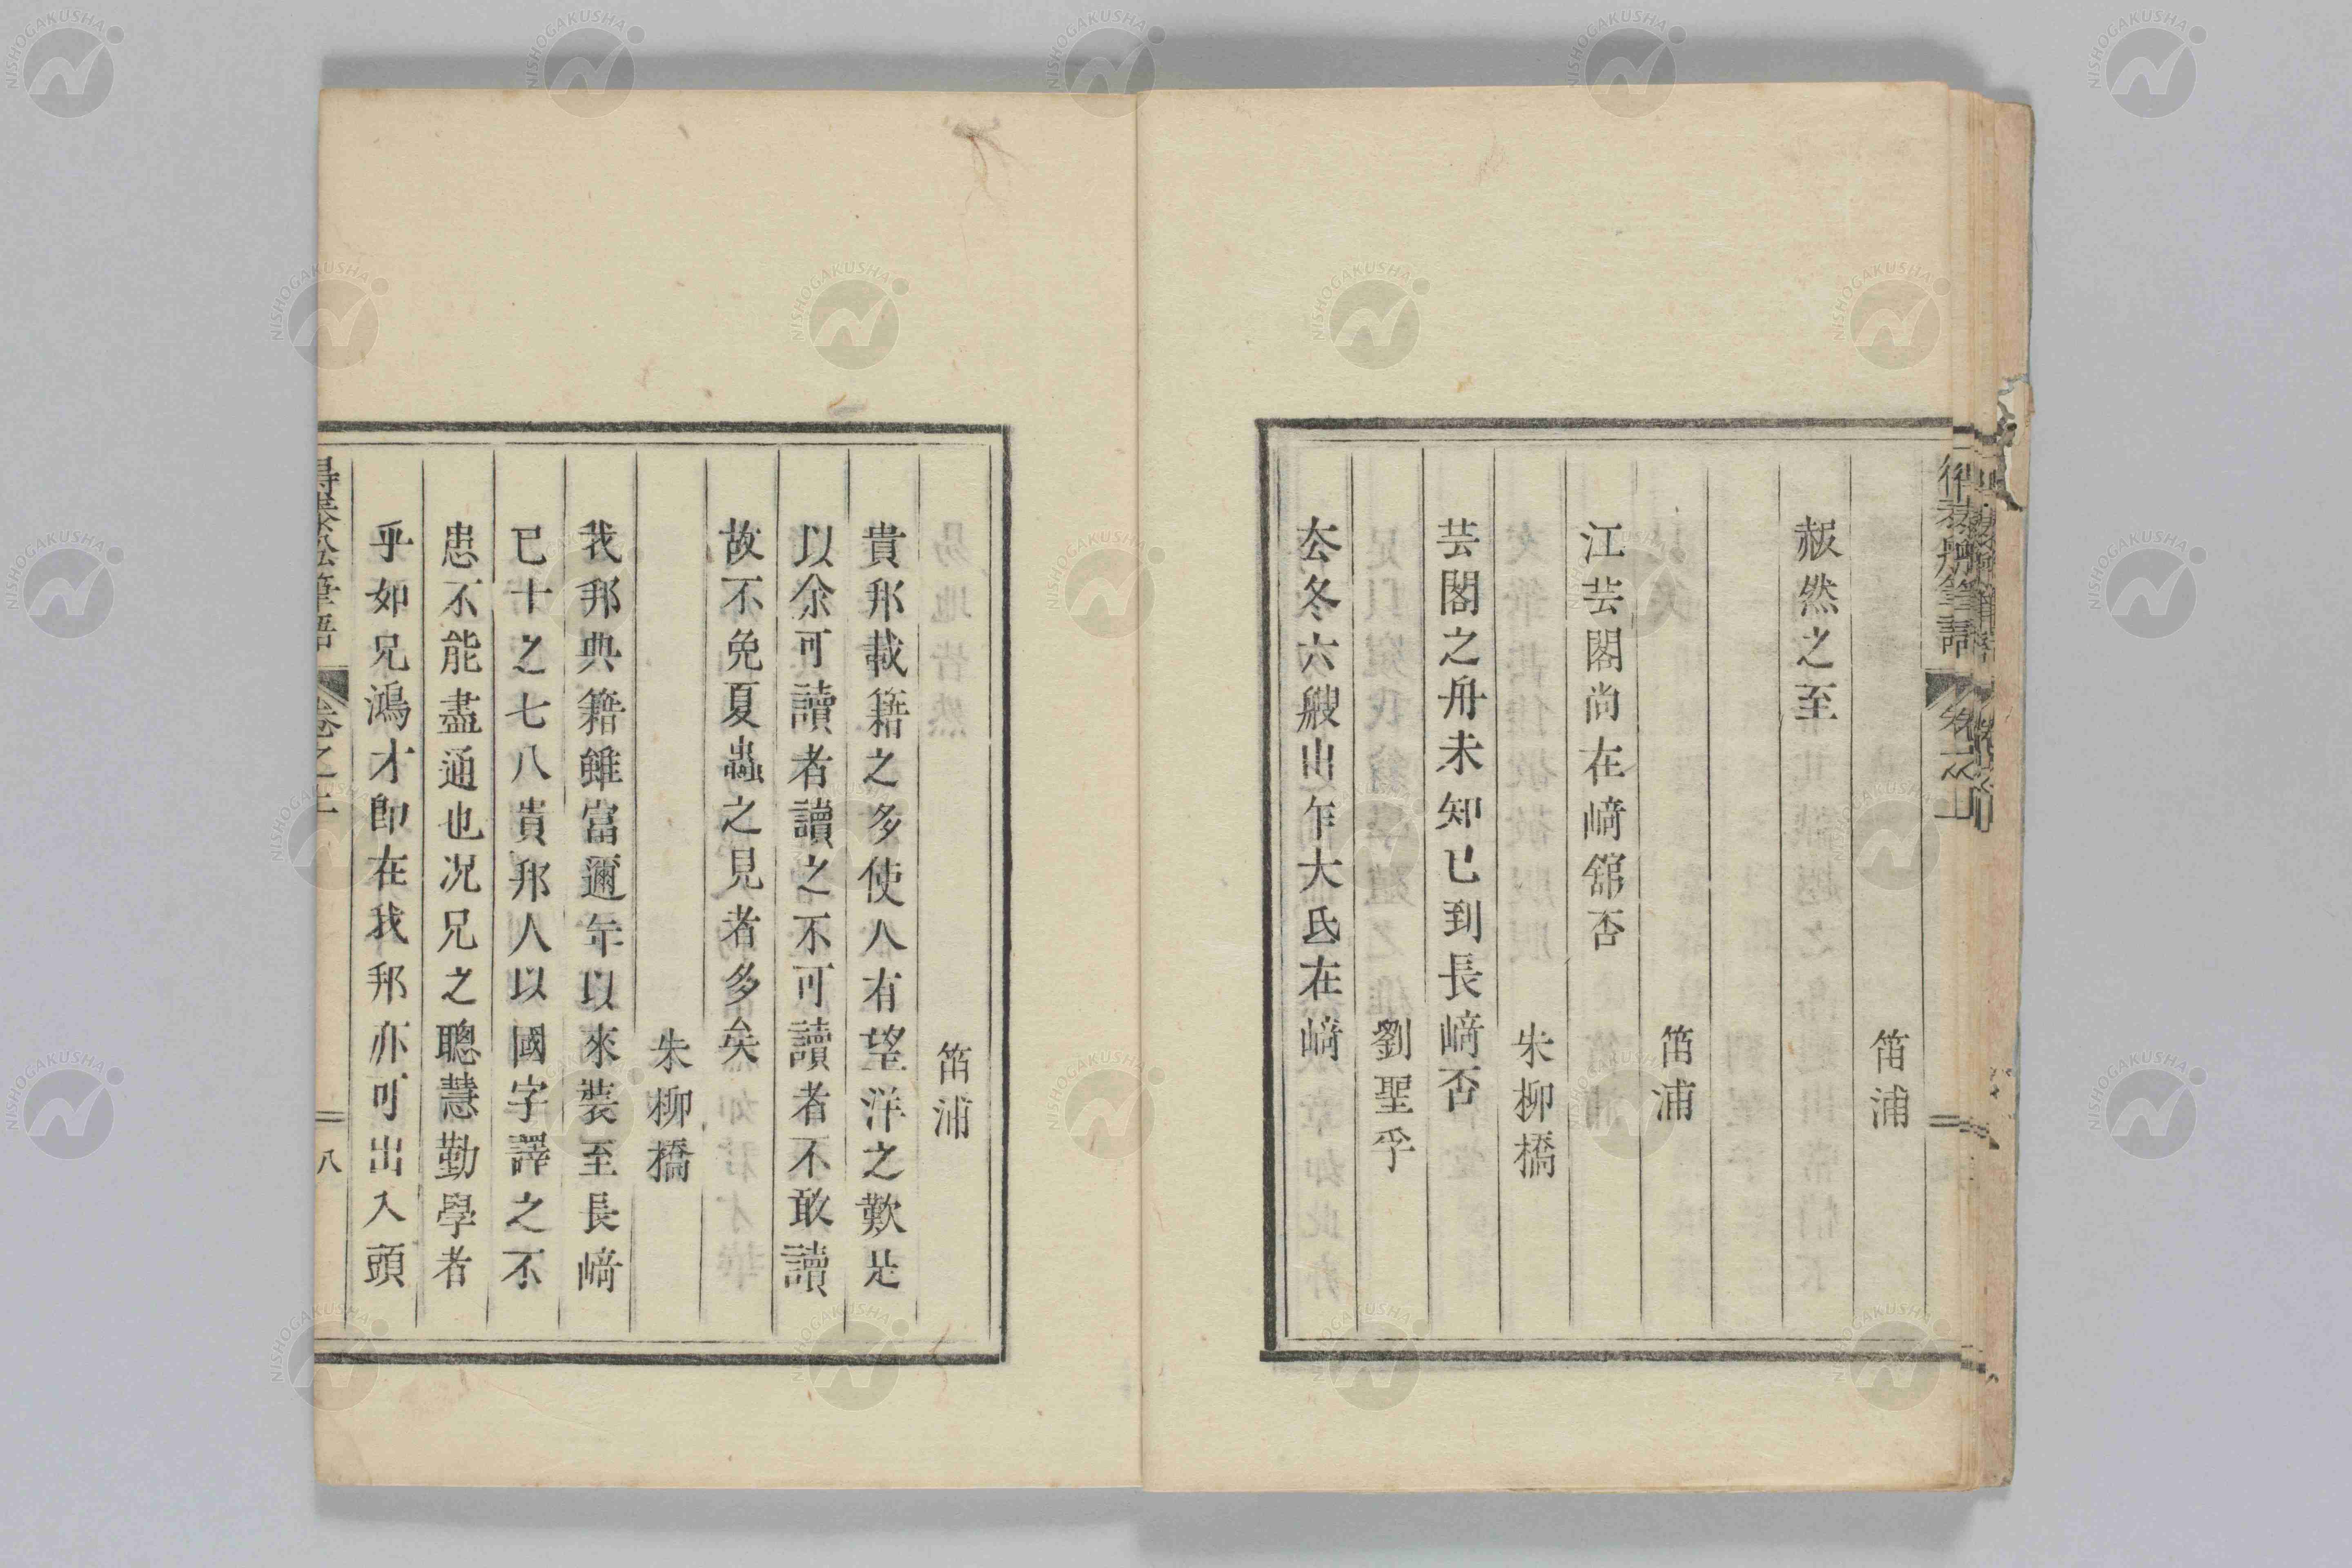 笛浦
赧然之至
笛浦
江芸閣尚在﨑舘否
朱柳橋
芸閣之舟未知已到長﨑否
劉聖孚
厺冬六艘山乍大氐在﨑
笛浦
貴邦載籍之多使人有望洋之歎是
以余可讀者讀之不可讀者不敢讀
故不免夏蟲之見者多矣
朱柳橋
我邦典籍雖富邇年以來裝至長﨑
已十之七八貴邦人以國字譯之不
患不能盡通也况兄之聰慧勤學者
乎如兄鴻才即在我邦亦可出入頭
得泰船筆語 卷之上 八
NISHOGAKUSHA